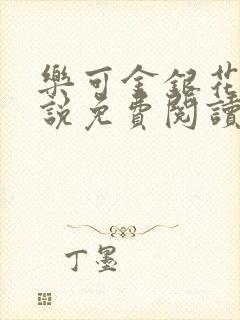 樂可金銀花
說免費閱讀
丁墨